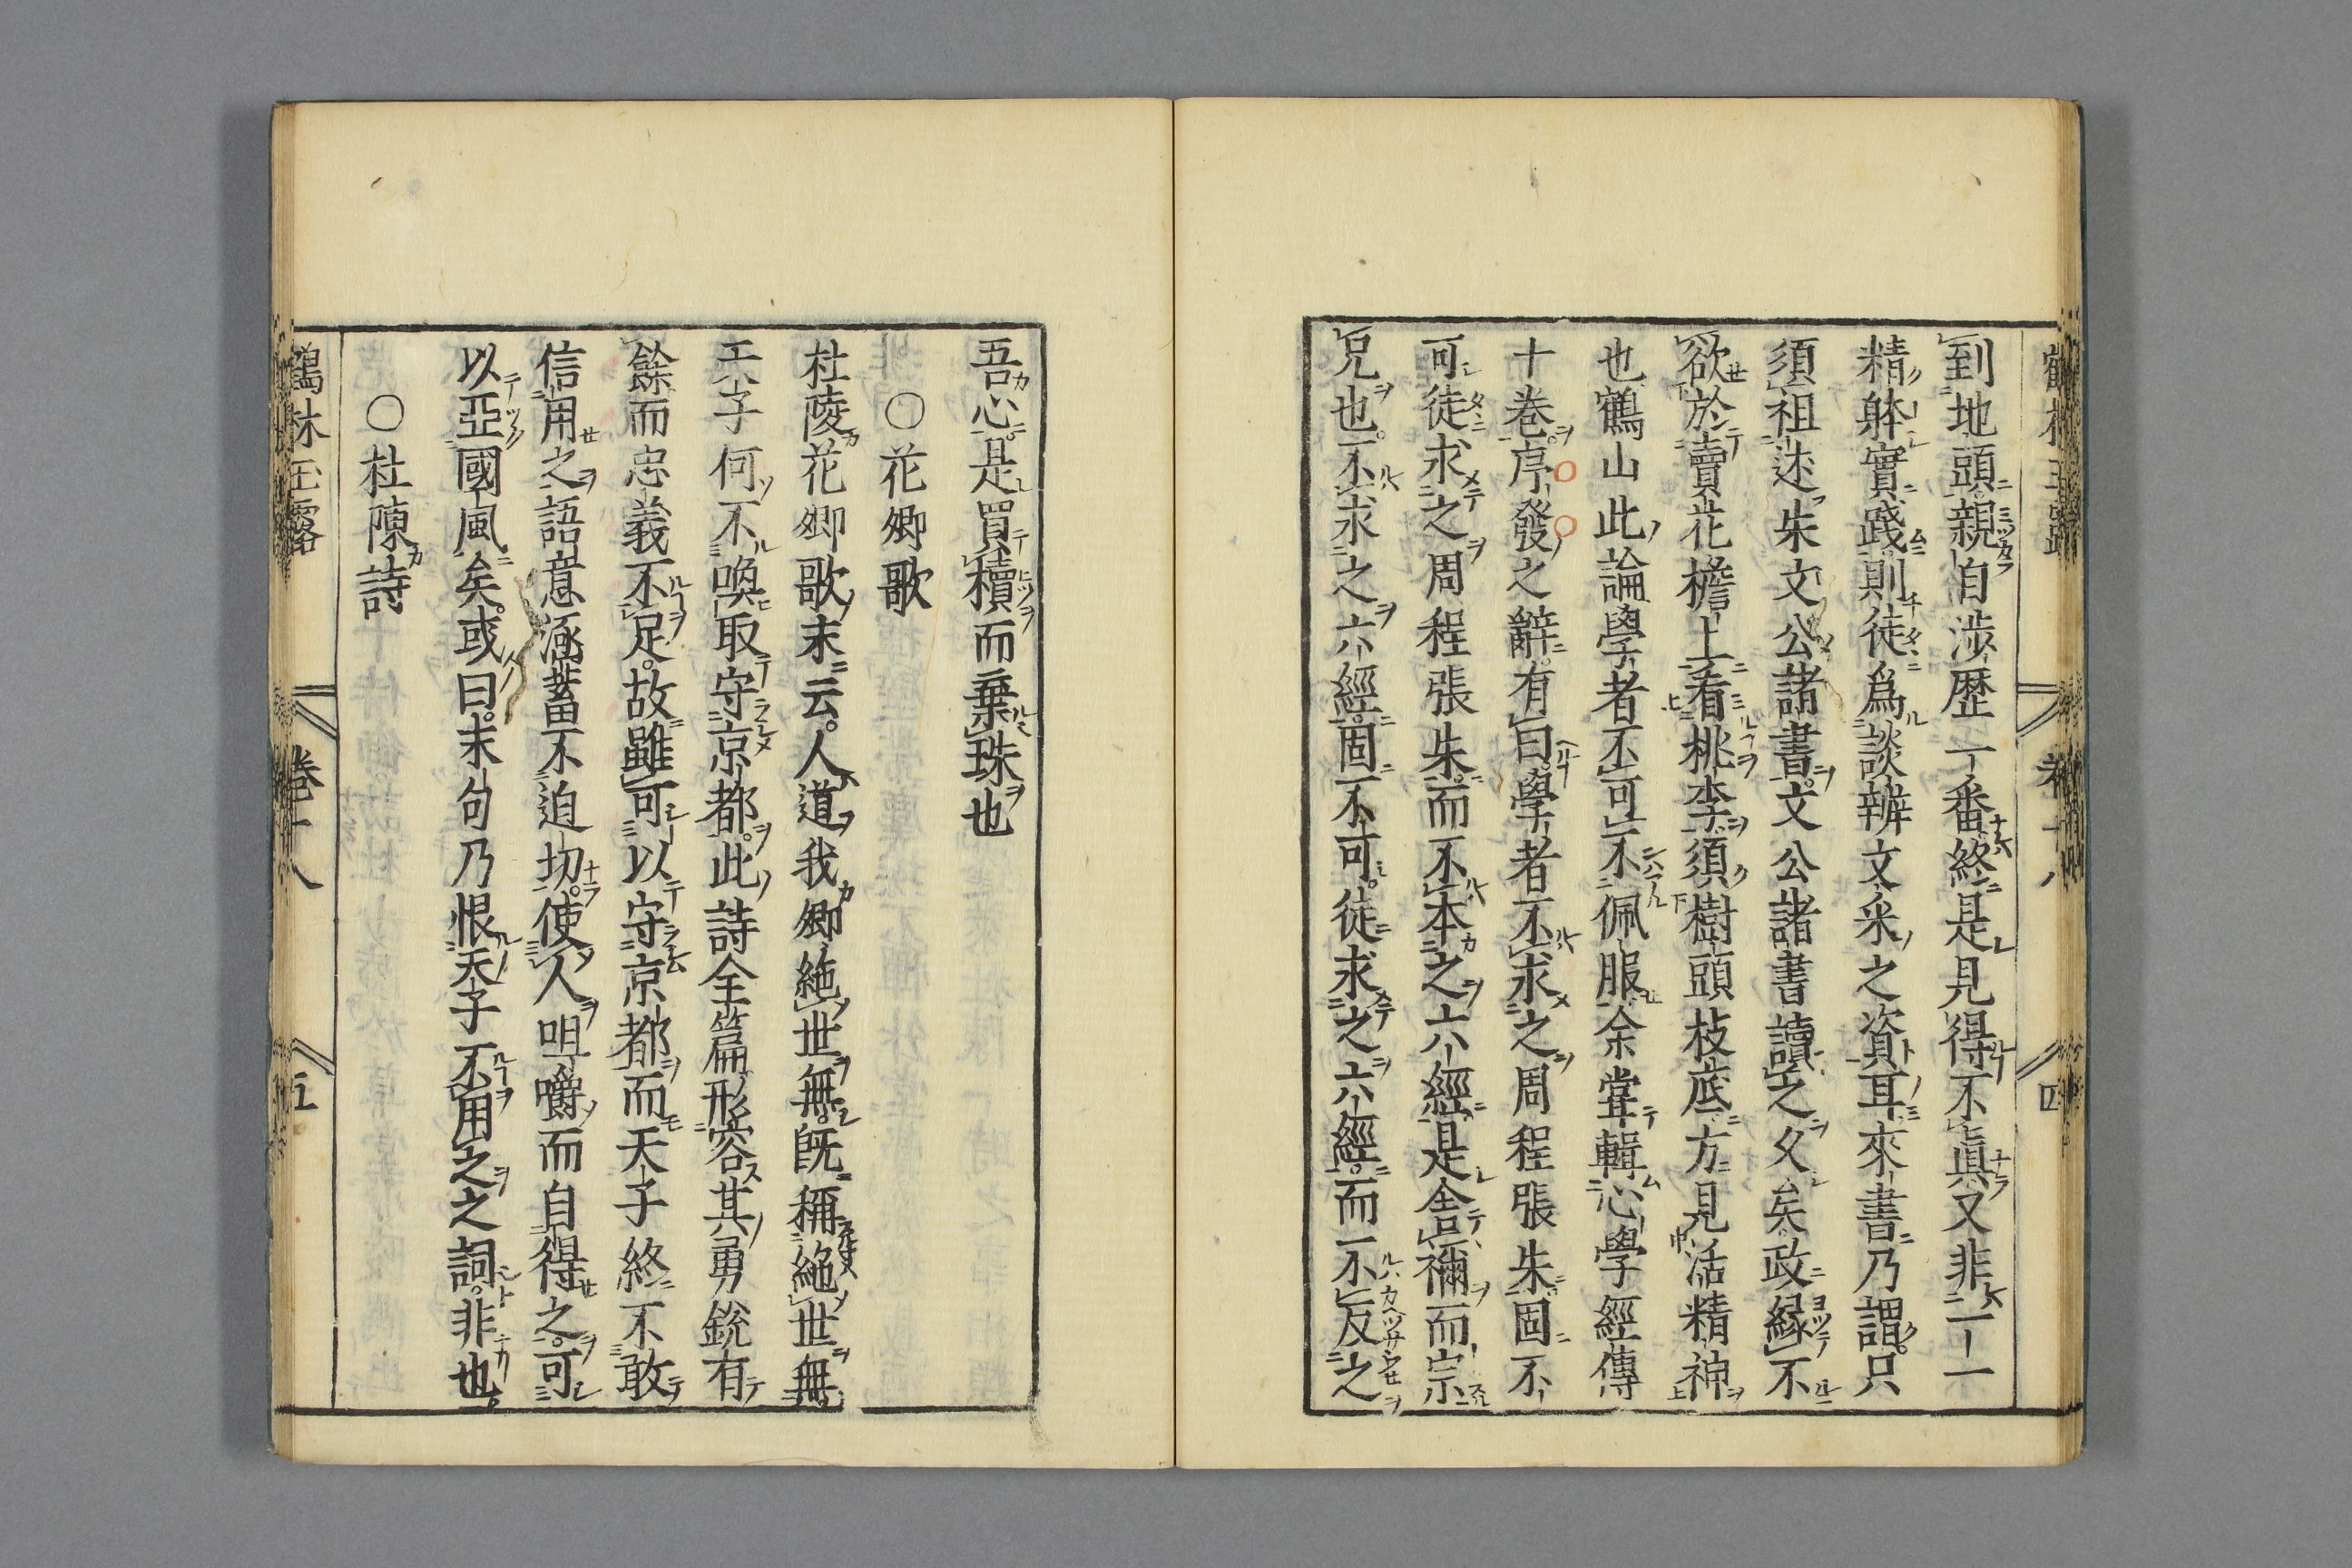 到地頭親自涉歷一番終是見得不眞又非一一
精躰實踐則徒爲談辨文釆之資耳來書乃謂只
須祖述朱文公諸書文公諸書讀之久矣政緣不
欲於賣花檐上看桃李須樹頭枝底方見活精神
也鶴山此論學者不可不佩服余甞輯心學經傳
十卷序發之辭有曰學者不求之周程張朱固不
可徒求之周程張朱而不本之六經是舍禰而宗
兄也不求之六經固不可徒求之六經而不反之
吾心是買櫝而棄珠也
○花卿歌
杜陵花卿歌末云人道我卿絶世無旣稱絶世無
天子何不喚取守京都此詩全篇形容其勇銳有
餘而忠義不足故雖可以守京都而天子終不敢
信用之語意涵蓄不迫切使人咀嚼而自得之可
以亞國風矣或曰末句乃恨天子不用之之詞非也
○杜陳詩
鶴林玉露 卷十八 五